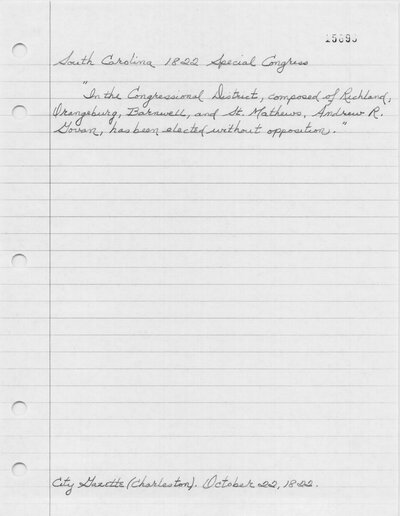 15690
South Carolina 1822 Special Congress
"In the Congressional District, composed of Richland,
Orangeburg, Barnwell, and St. Mathews, Andrew R.
Govan, has been elected without opposition."
City Gazette (Charleston). October 22, 1822.